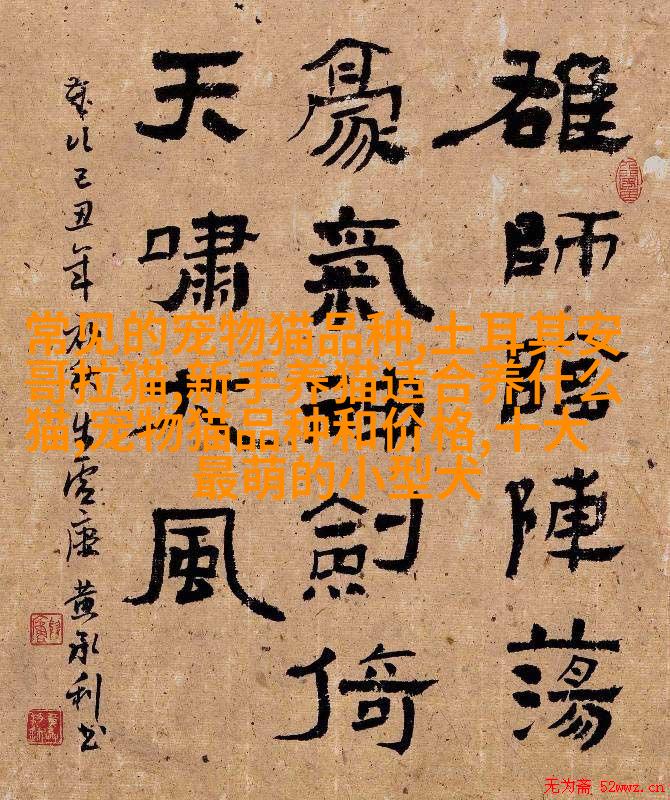 雄師陣蕩
豪氣劍倚
天嘯風
歲次己丑年秋黄永利书
常见的宠物猫品种,土耳其安
哥拉猫,新手养猫适合养什么
猫,宠物猫品种和价格,十大
最萌的小型犬
无为斋 52wwz.cn